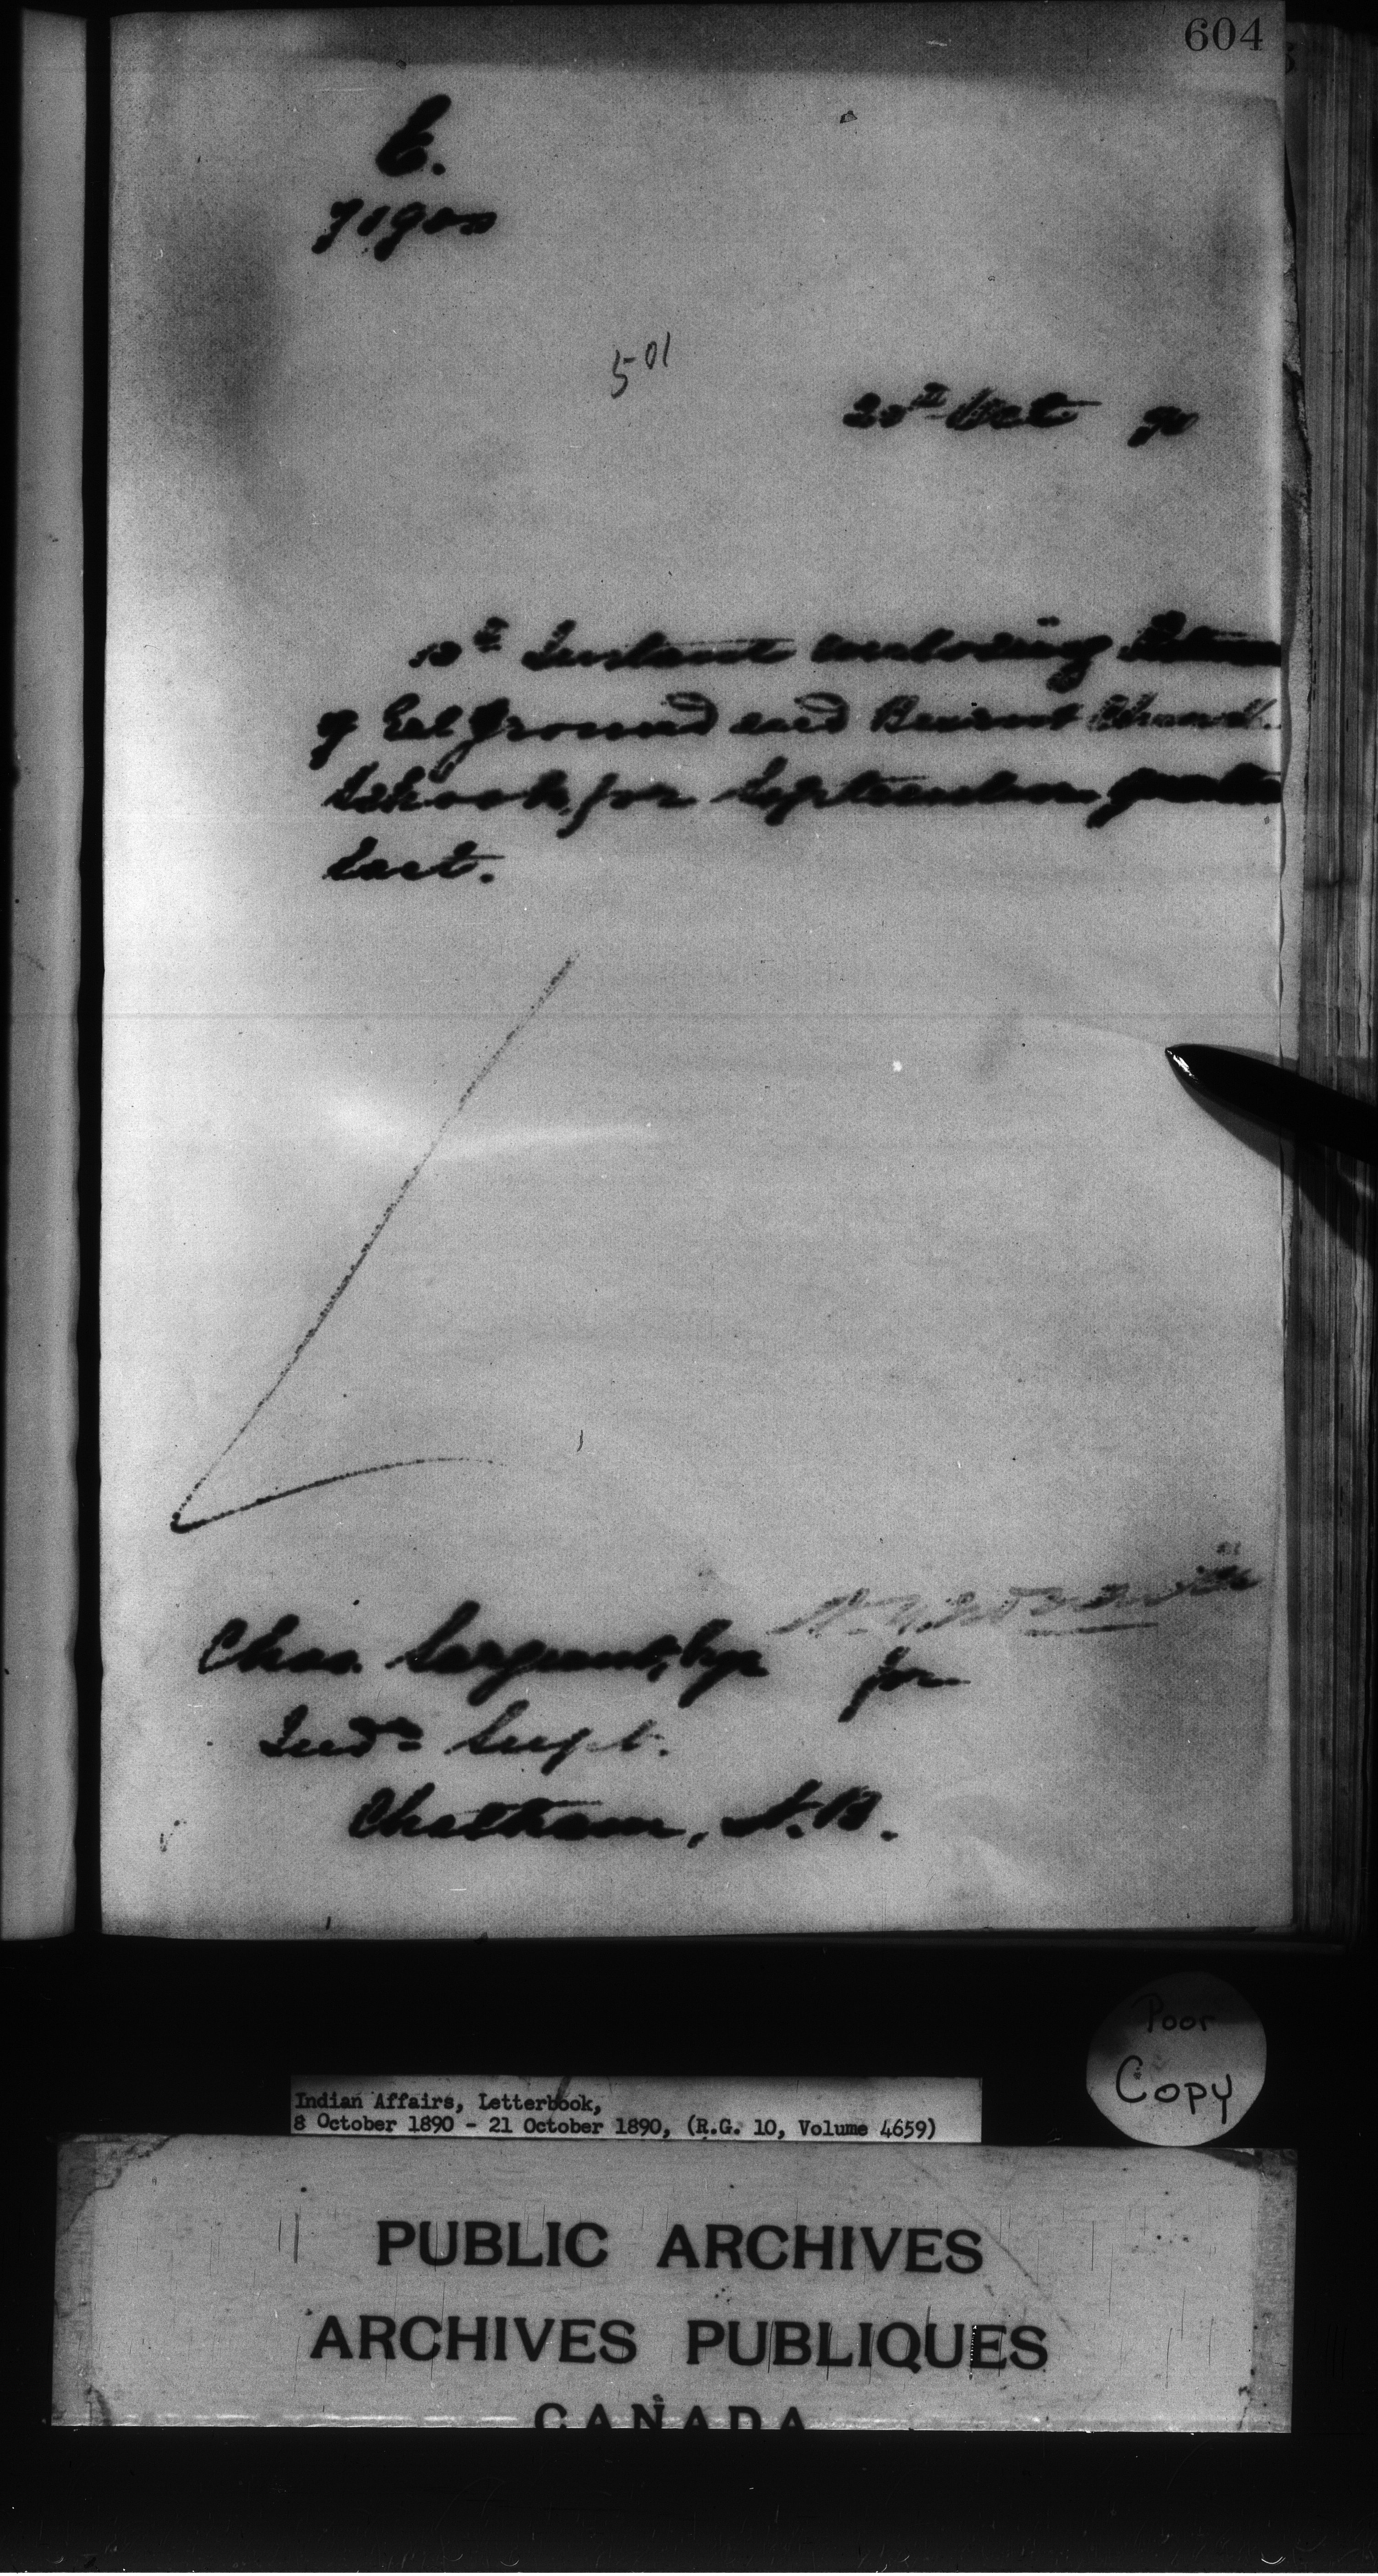 604
E.
501
20th Oct 90
10th Instant enclosing Return
of Eel Ground and Burnt Church
Schools for September quarter
last.
Chas. Sargeant, Esq
for
Indn Supt.
Chatham, N.B.
Poor
Copy
Indian Affairs, Letterbook,
8 October 1890 - 21 October 1890, (R.G. 10, Volume 4659)
PUBLIC ARCHIVES
ARCHIVES PUBLIQUES
CANADA